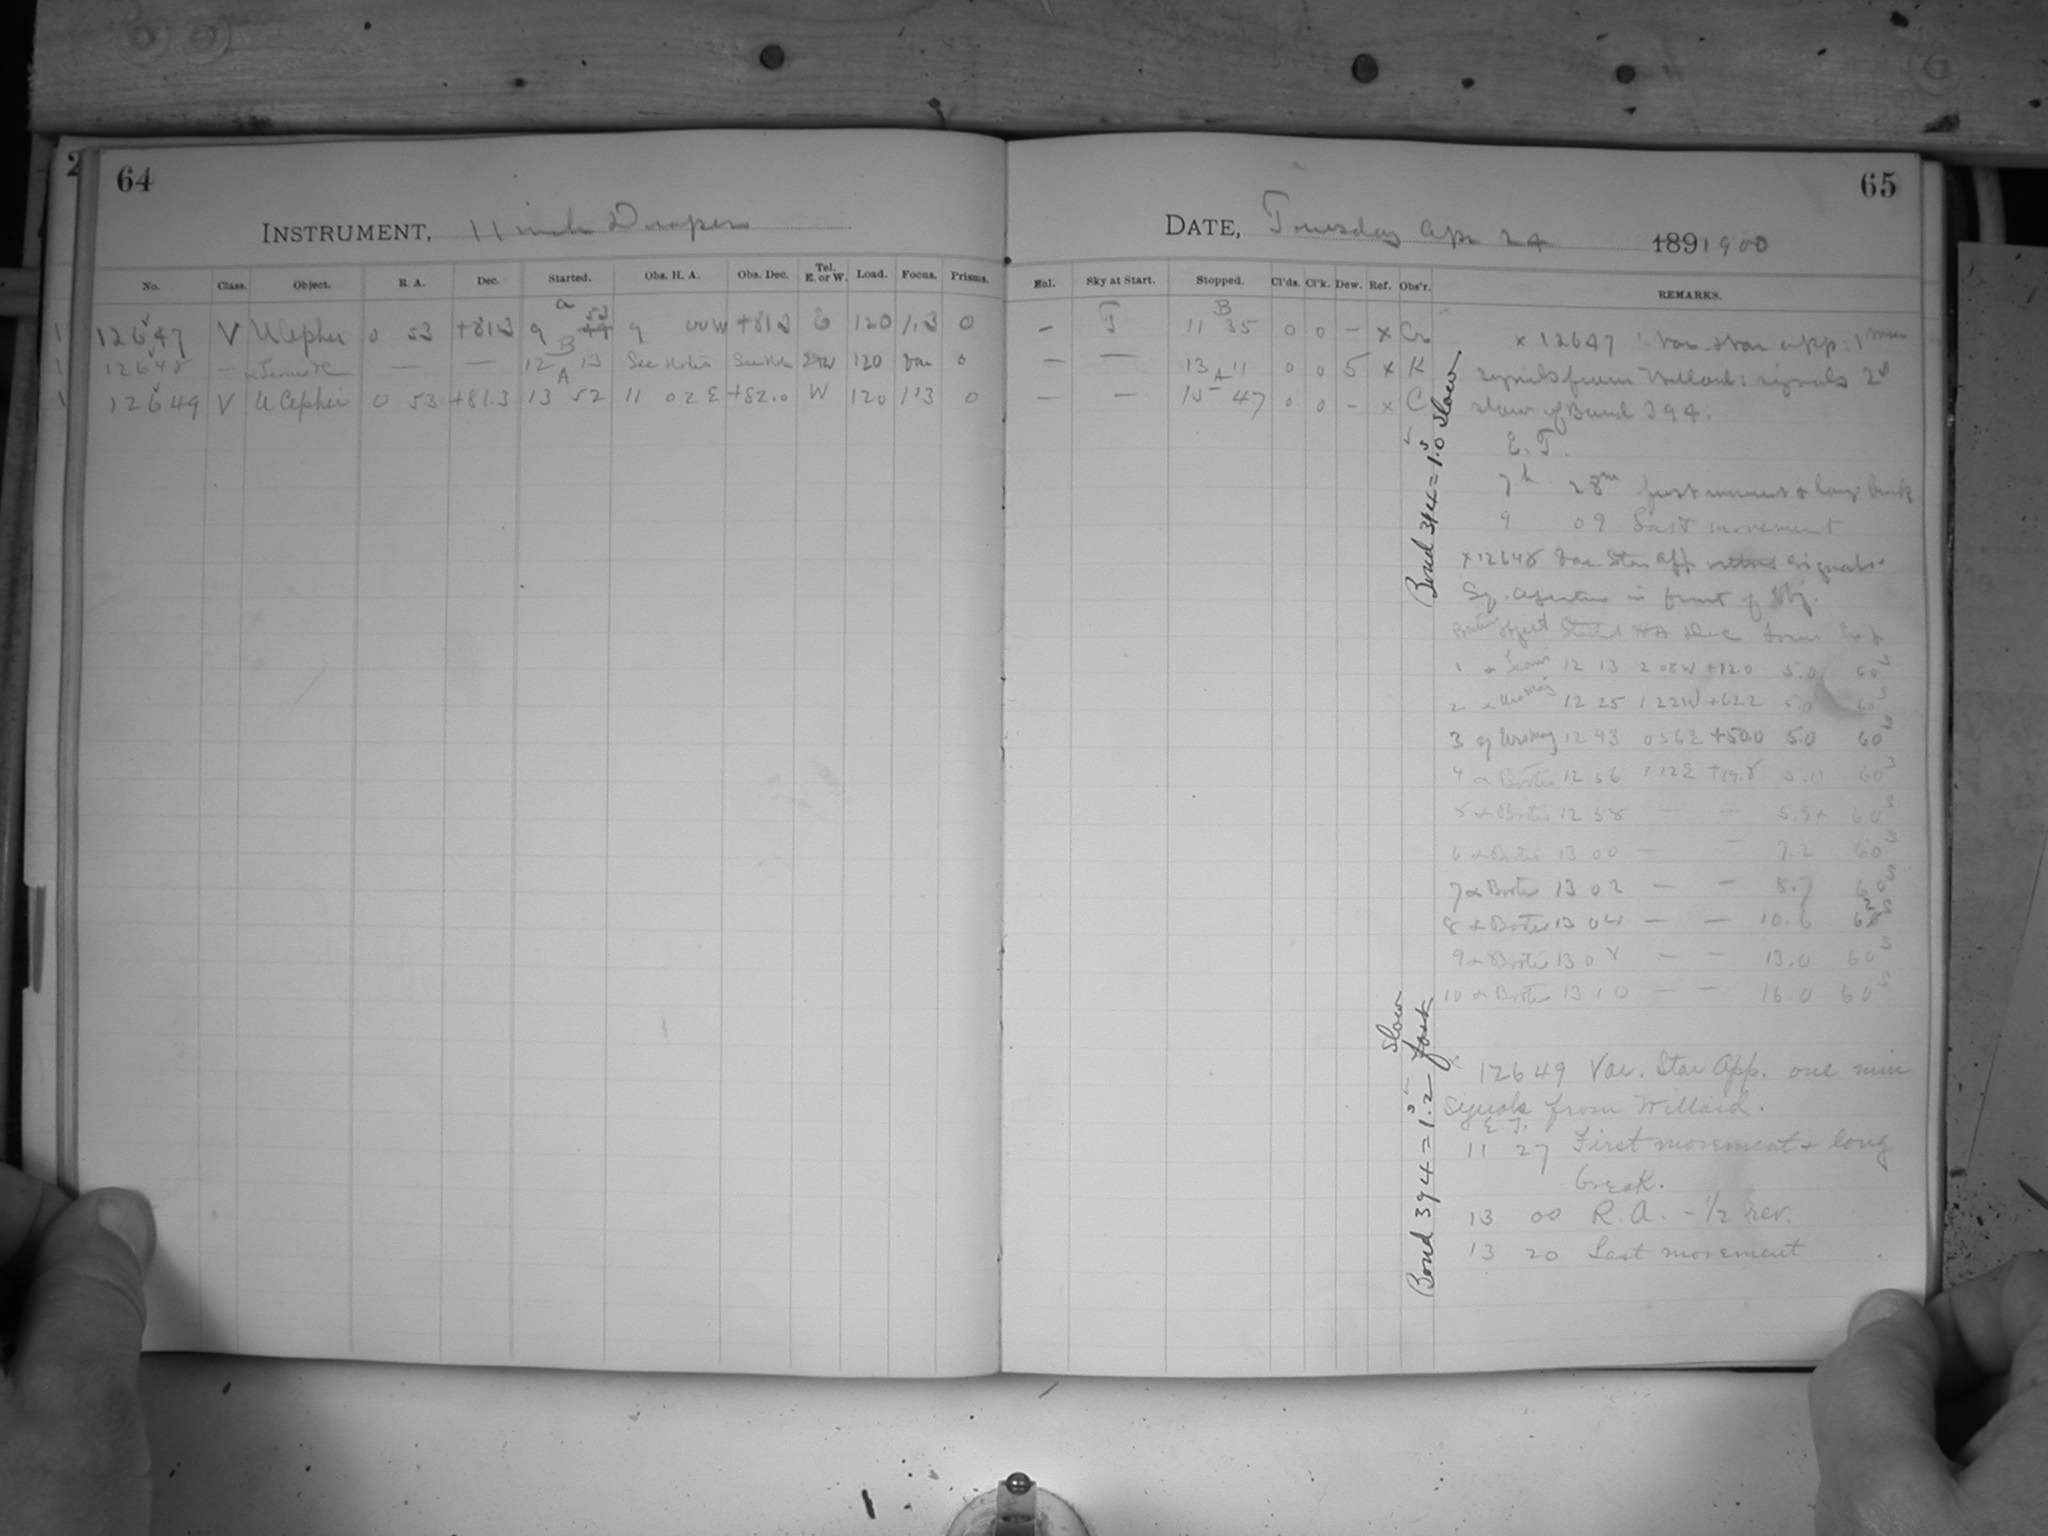 64
INSTRUMENT, 11 inch Draper
No. Class. Object. R. A. Dec. Started. Obs. H. A. Obs. Dec. Tel. E. or W. Load. Focus. Prisms.
12647 V U Cephei 0 53 +81.3 a 9 53 9 00 W +81.3 E 120 11.3 0
12648 — — — B 12 13 See Notes See Notes 120 Var 0
12649 V U Cephei 0 53 +81.3 A 13 52 11 02 E +82.0 W 120 11.3 0
65
DATE, Tuesday Apr 24 1891900
Bal. Sky at Start. Stopped. Cl'ds. Cl'k. Dew. Ref. Obs'r. REMARKS.
— B 11 35 0 0 — x
— — 13 11 0 0 5 x K
— — A 15 47 0 0 — x C
x 12647 Var. star app. 1 min
signals from Willard: signals 2s
slow of Bond 394.
E. T.
7h 28m first movement & long break
9 09 Last movement
x 12648 Var Star App. signals
Sq. aperture in front of Obj.
Position Object Started HA Dec Focus Exp
1 α Leonis 12 13 2 08 W +12.0 5.0 60s
2 α 12 25 1 22 W +62.2 5.0 60s
3 η Urs Maj 12 43 0 56 E +50.0 5.0 60s
4 α Bootis 12 56 1 12 E +19.8 5.0 60s
5 α Bootis 12 58 — — 5.9 60s
6 α Bootis 13 00 — — 7.2 60s
7 α Bootis 13 02 — — 8.7 60s
8 α Bootis 13 04 — — 10.6 62s
9 α Bootis 13 08 — — 13.0 60s
10 α Bootis 13 10 — — 16.0 60s
x 12649 Var. Star App. one min
signals from Willard.
E T.
11 27 First movement & long
break.
13 00 R.A. - 1/2 rev.
13 20 Last movement
Bond 394 = 1.0s slow
Bond 394 = 1.2s fast slow